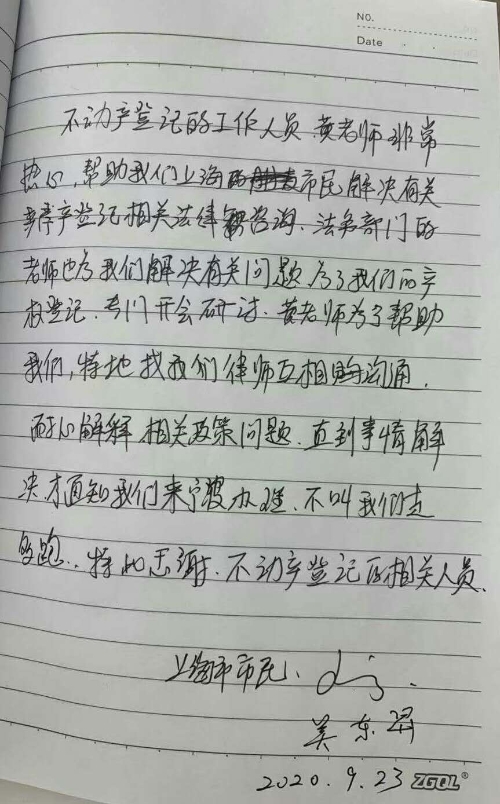 NO.
Date
不动产登记的工作人员黄老师非常
热心,帮助我们上海市民解决有关
产登记相关法律咨询.法务部门的
老师也为我们解决有关问题.为了我们的产
权登记.专门开会研讨.黄老师为了帮助
我们,特地找我们律师互相沟通.
耐心解释相关政策问题.直到事情解
决才通知我们来宁波办理.不叫我们走
跑..特此志谢.不动产登记的相关人员.
上海市市民.
东
2020.9.23 ZGOL®